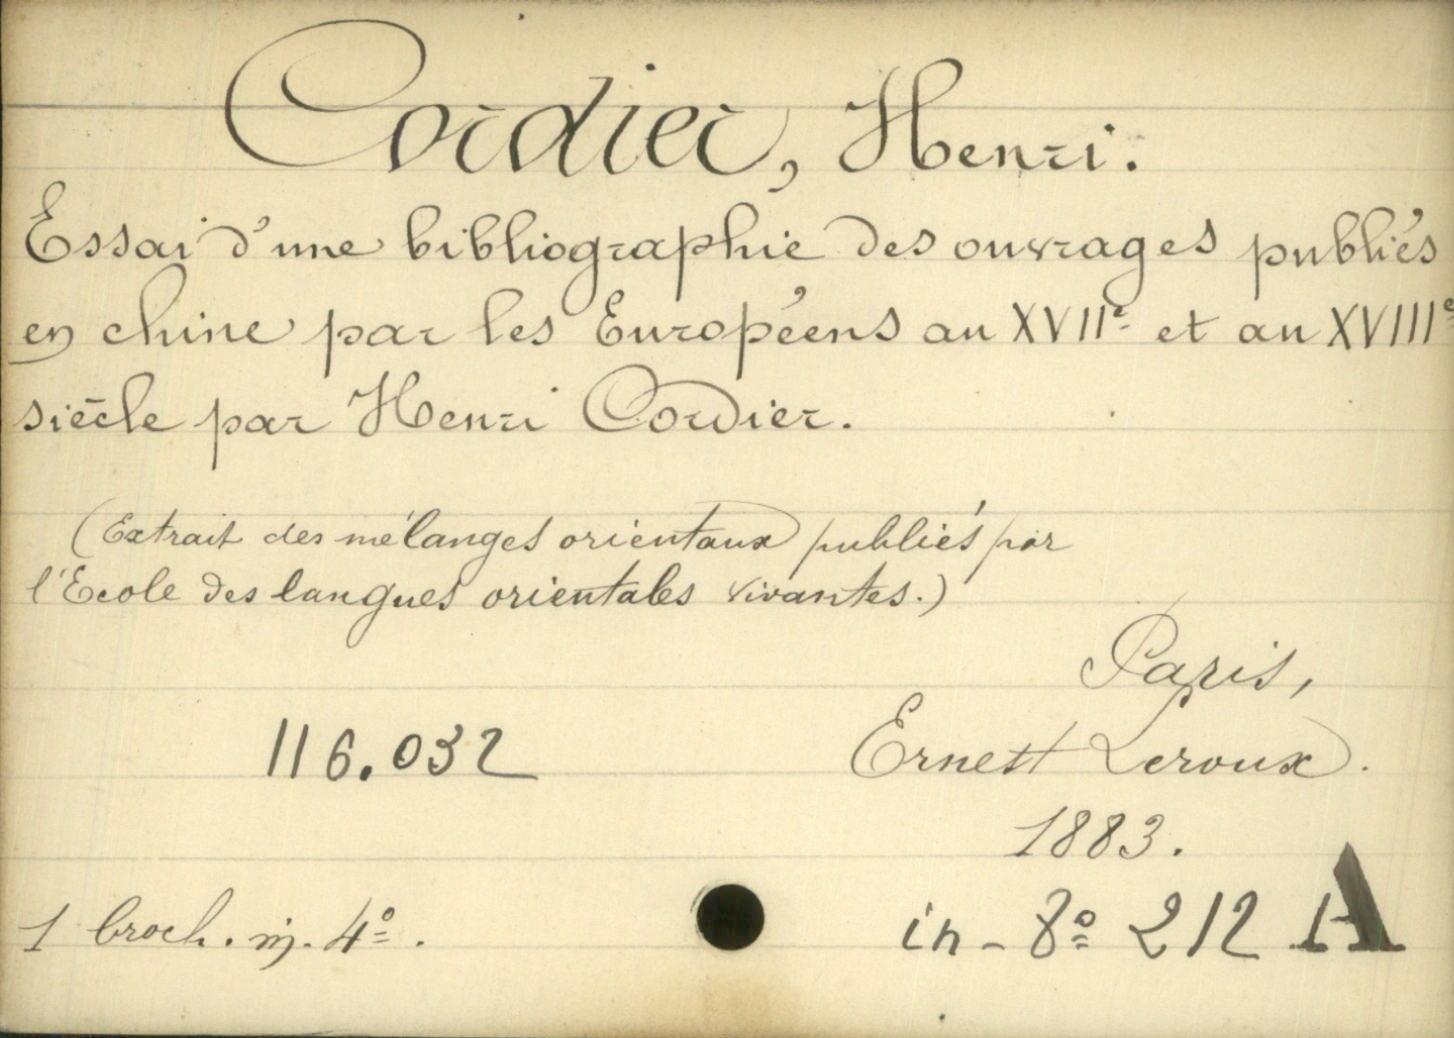 Cordier, Henri.
Essai d'une bibliographie des ouvrages publiés
en chine par les Européens au XVIIe et au XVIIIe
siècle par Henri Cordier.
(Extrait des mélanges orientaux publiés par
l'Ecole des langues orientales vivantes.)
Paris,
116.032
Ernest Leroux.
1883.
1 broch. in-4º.
in-8º 212 A